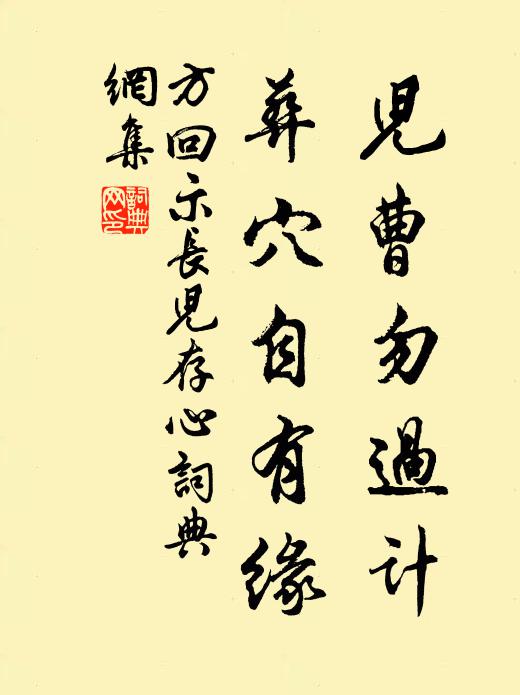 兒曹勿過計
葬穴自有緣
方回示長兒存心詞典
網集
詞典
网印